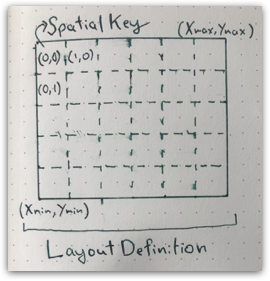 Spatial Key
(Xmax, Ymax)
(0,0) (1,0)
(0,1)
(Xmin, Ymin)
Layout Definition